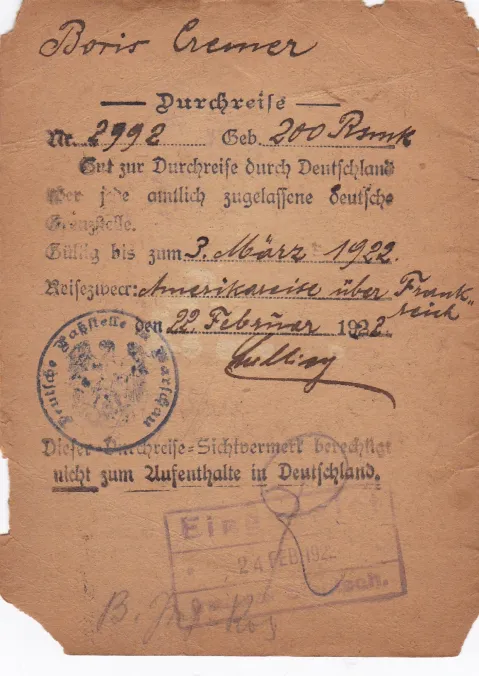 Boris Cremer
Durchreise
Nr. 2992 Geb. 200 Rmk
Gut zur Durchreise durch Deutschland
über jede amtlich zugelassene deutsche
Grenzstelle.
Gültig bis zum 3. März 1922.
Reisezweck: Amerikareise über Frank-
reich
den 22. Februar 1922
Deutsche Paßstelle in Warschau
Dieser Durchreise-Sichtvermerk berechtigt
nicht zum Aufenthalte in Deutschland.
24 FEB 1922
B.